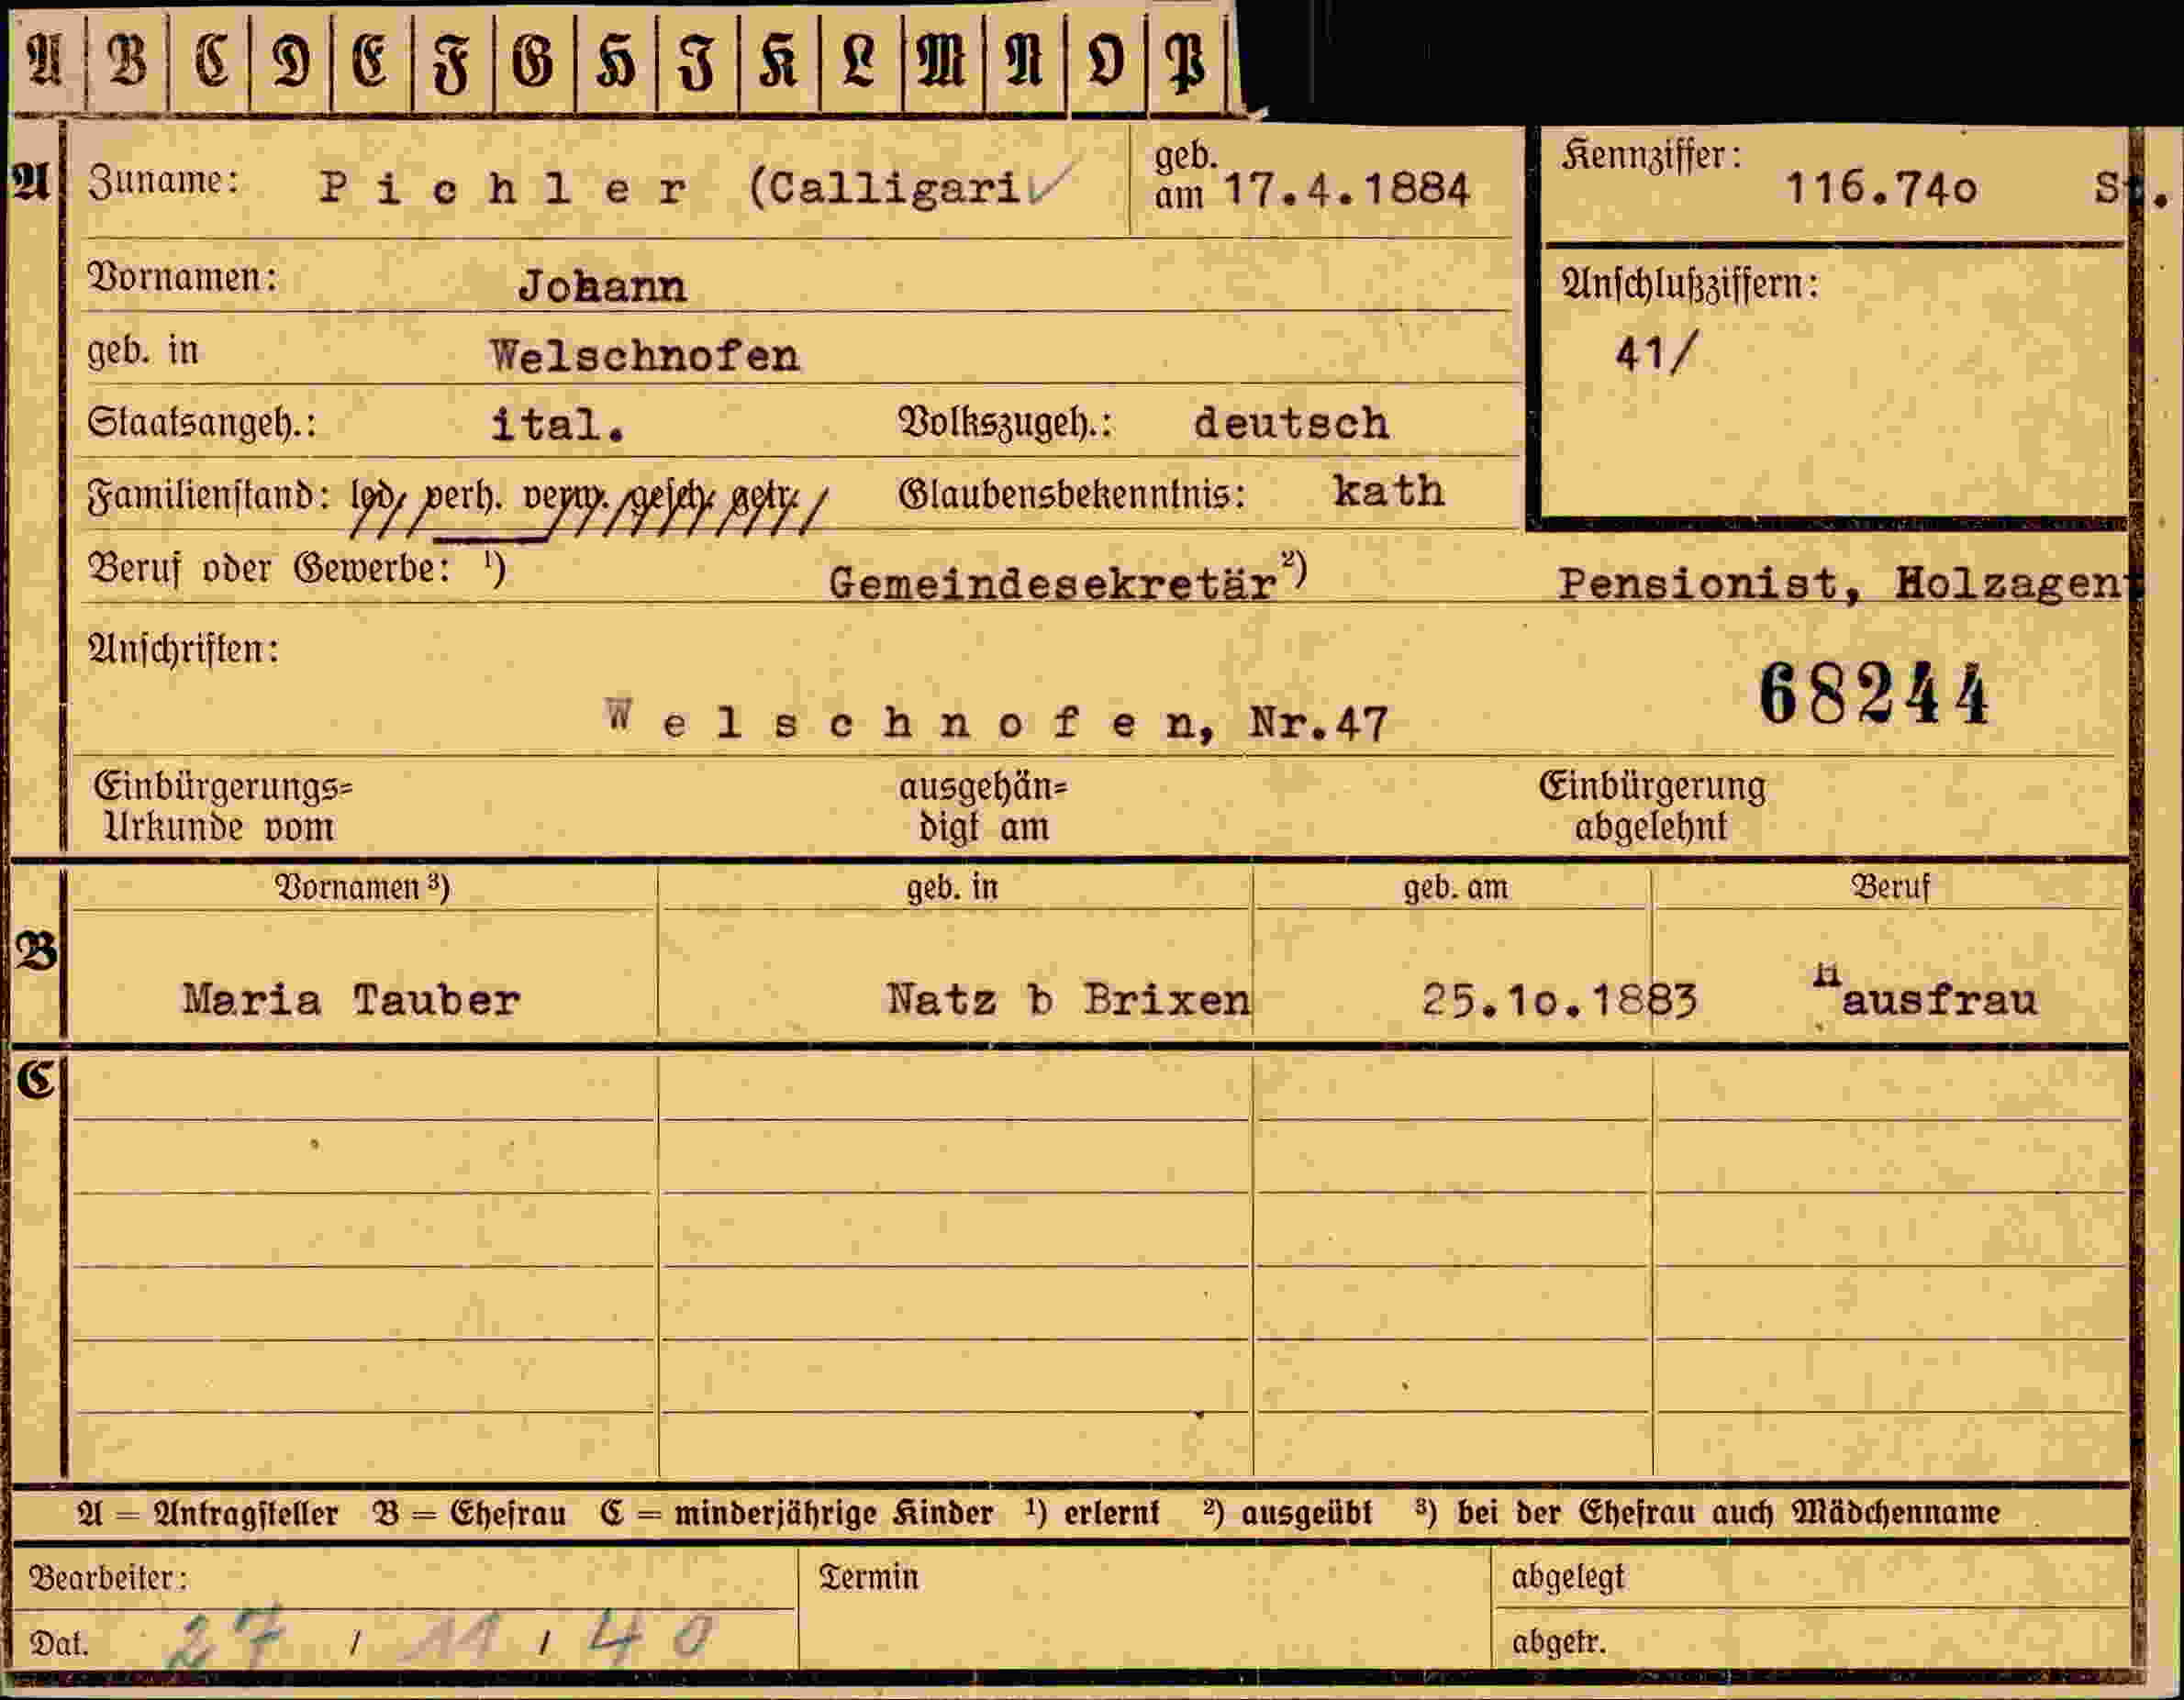 A B C D E F G H I K L M N O P
A Zuname: Pichler (Calligari geb. am 17.4.1884 Kennziffer: 116.74o St.
Vornamen: Johann Anschlußziffern:
geb. in Welschnofen 41/
Staatsangeh.: ital. Volkszugeh.: deutsch
Familienstand: led. verh. verw. gesch. getr. Glaubensbekenntnis: kath
Beruf oder Gewerbe: ¹) Gemeindesekretär ²) Pensionist, Holzagent
Anschriften:
68244
Welschnofen, Nr.47
Einbürgerungs= ausgehän= Einbürgerung
Urkunde vom digt am abgelehnt
Vornamen ³) geb. in geb. am Beruf
B Maria Tauber Natz b Brixen 25.1o.1883 Hausfrau
C
A = Antragsteller B = Ehefrau C = minderjährige Kinder ¹) erlernt ²) ausgeübt ³) bei der Ehefrau auch Mädchenname
Bearbeiter: Termin abgelegt
Dat. 27 / 11 / 40 abgetr.